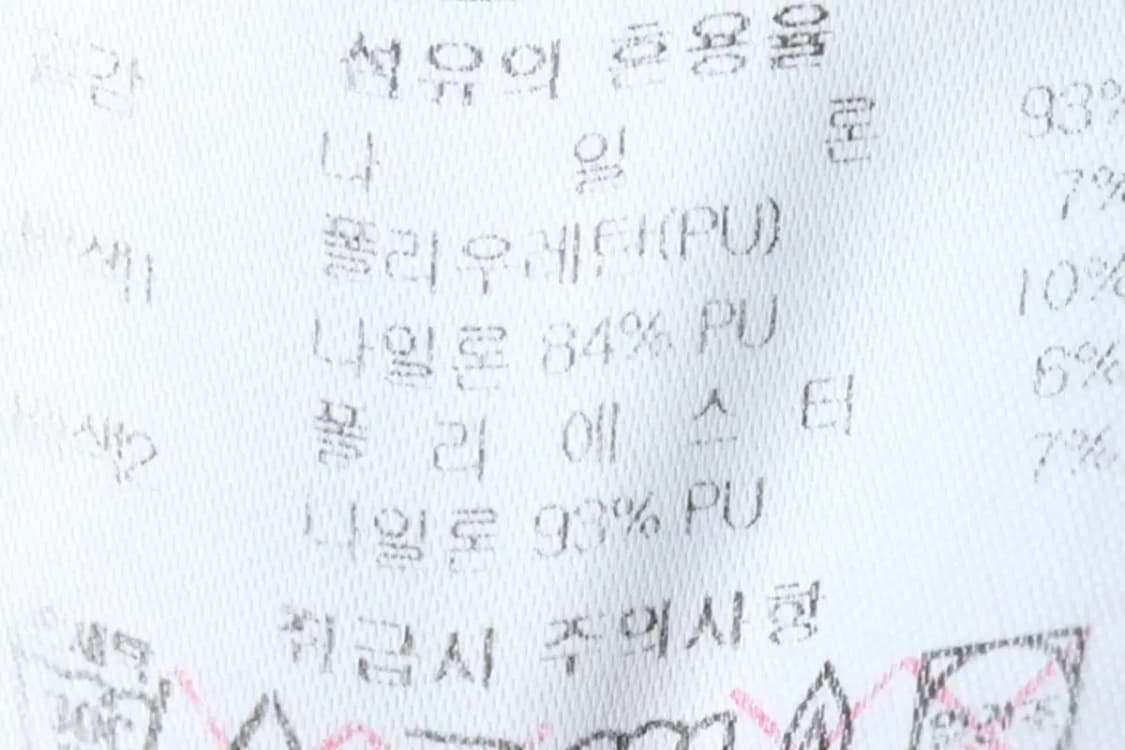 섬유의 혼용율
겉감 나 일 론 93%
폴리우레탄(PU) 7%
배색1 나일론 84% PU 10%
폴 리 에 스 터 6%
배색2 나일론 93% PU 7%
취급시 주의사항
손세탁
30℃